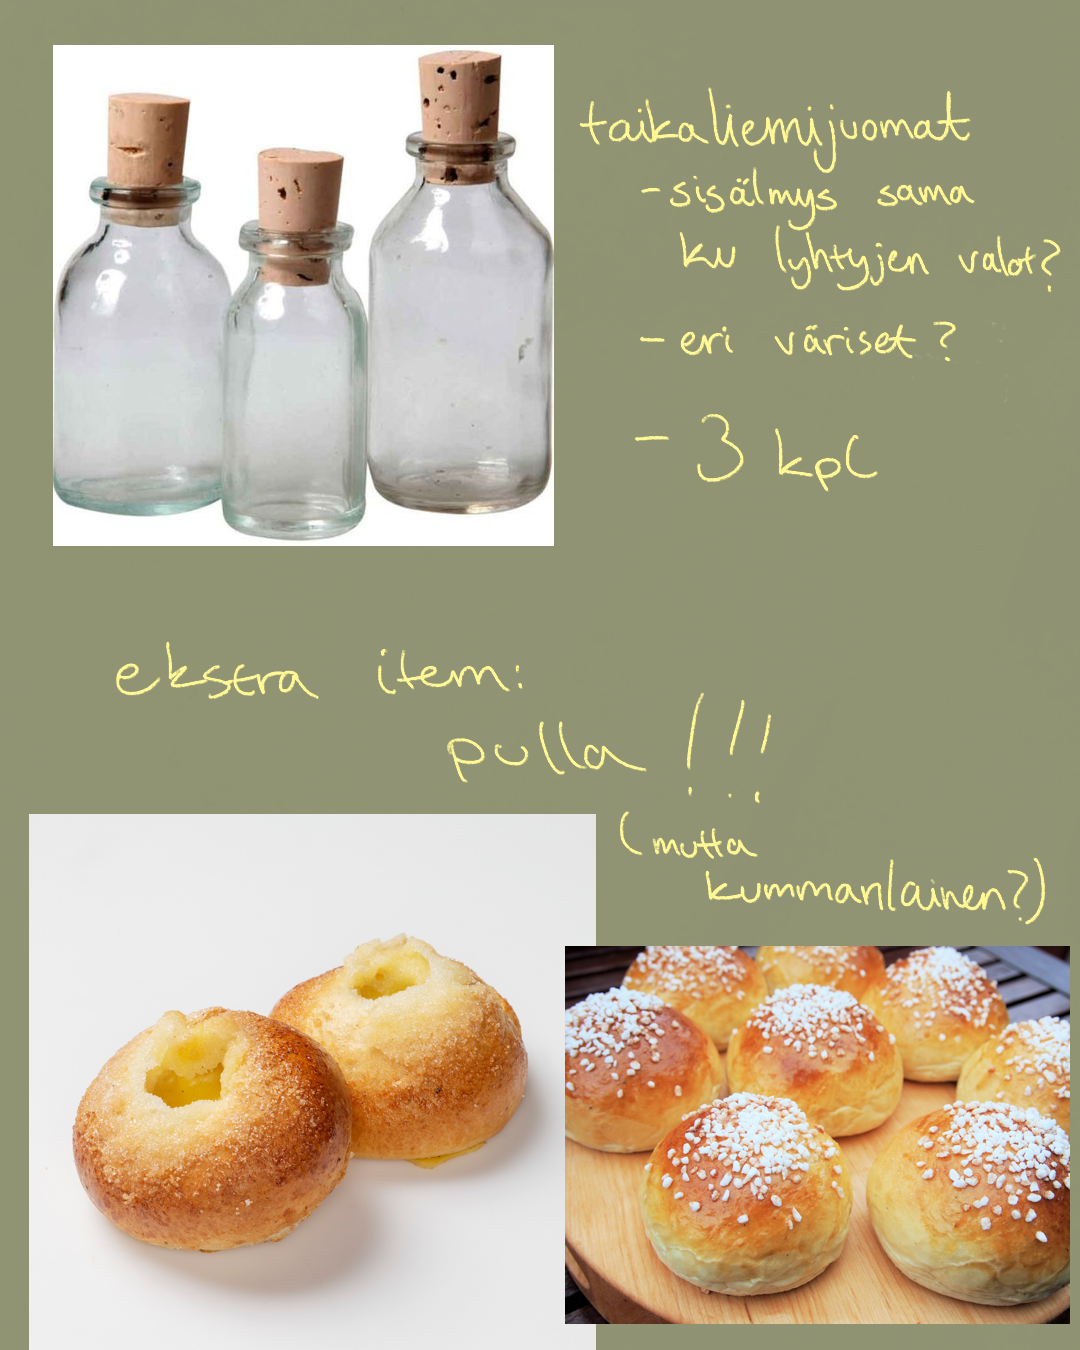 taikaliemijuomat
- sisälmys sama
ku lyhtyjen valot?
- eri väriset?
- 3 kpl
ekstra item:
pulla !!!
(mutta
kummanlainen?)